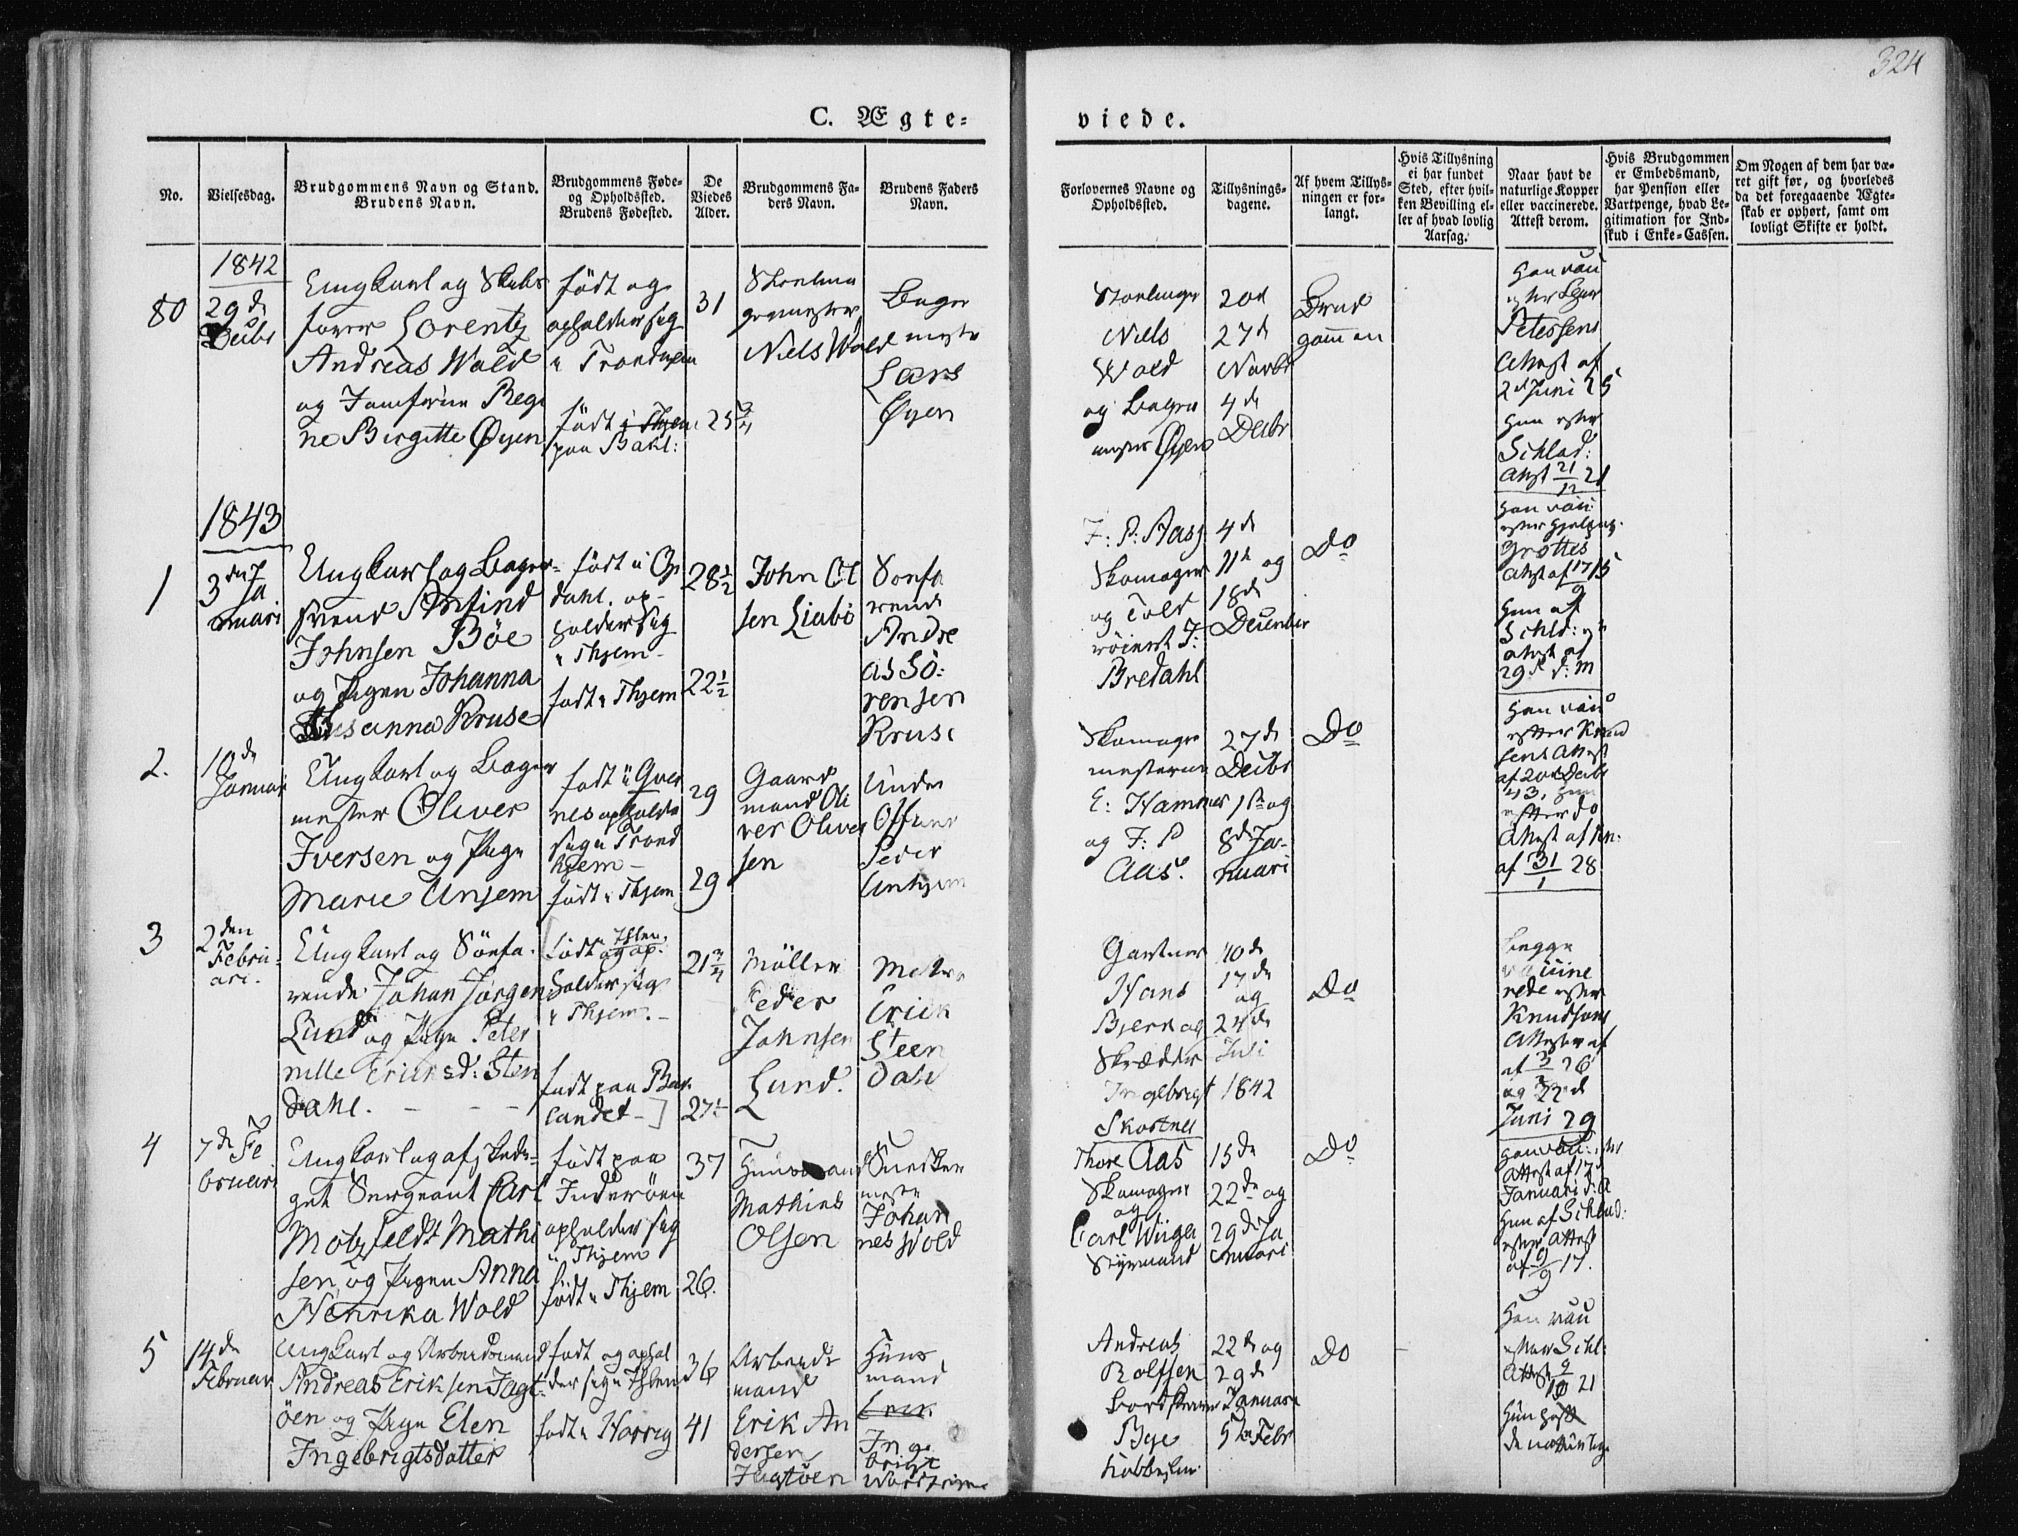 324
C. Ægte-
viede.
No.
Vielsesdag.
Brudgommens Navn og Stand.
Brudens Navn.
Brudgommens Føde-
og Opholdssted.
Brudens Fødested.
De
Viedes
Alder.
Brudgommens Fa-
ders Navn.
Brudens Faders
Navn.
Forlovernes Navne og
Opholdssted.
Tillysnings-
dagene.
Af hvem Tillys-
ningen er for-
langt.
Hvis Tillysning
ei har fundet
Sted, efter hvil-
ken Bevilling el-
ler af hvad lovlig
Aarsag.
Naar havt de
naturlige Kopper
eller vaccinerede.
Attest derom.
Hvis Brudgommen
er Embedsmand,
har Pension eller
Vartpenge, hvad Le-
gitimation for Ind-
skud i Enke-Cassen.
Om Nogen af dem har væ-
ret gift før, og hvorledes
da det foregaaende Ægte-
skab er ophørt, samt om
lovligt Skifte er holdt.
1842
80
29de
Decbr
Ungkarl og Skibs
fører Lorentz
Andreas Wold
og Jomfrue Regi
ne Birgitte Øyen
født og
opholder sig
i Trondhjem
født i Thjem
paa Bakl:
31
25 3/4
Niels Wold
Bager
mester
Lars
Øyen
Niels
Wold
og Bager
mester Øyen
20de
27de
Novbr
4de
Decbr
Brud
gommen
Han vac
efter
Petersens
Attest af
2de Juni 25
Hun efter
Schlad:
Attst 21/12 21
1843
1
3die Ja
nuari
Ungkarl og Bager-
svend Arnfind
Johnsen Böe
og Pigen Johanna
Susanna Kruse
født i Op
dahl. op-
holder sig
i Thjem-
født i Thjem
28 1/2
22 1/2
John Ol
sen Liabö
Sönfa
rende
Andre
as Sö:
rensen
Kruse
F: P: Aas
Skomager
og Told
röierst J:
Bredahl
4de
11te og
18de
December
Do
Han vac:
efter
Grøttes
Attst af 17/9 15
Hun af
Schld:
Attst af
29de d: M
2.
10de
Januar
Ungkarl og Bager
mester Oliver
Iversen og Pige
Marie Unjem
født i Qver
nes opholder
sig i Trond
hjem-
født i Thjem
29
29
Gaard
mand Oli
ver Oliver
sen
Peder
Unhjem
Skomager
mesterne
E: Hammer
og F: P
Aas.
27de
Decbr
1ste og
8de Ja-
nuari
Do
Han vac
efter Knud
sens Attest
af 20de Decbr
43, Hun
efter do
Attest af Kn.
af 31/1 28
3
2den
Febru-
ari.
Ungkarl og Sönfa.
rende Johan Jörgen
Lund og Pige Peter
nille Eriksd: Sten
dahl. - - -
født i Ihlen.
og op-
holder sig
i Thjem.-
født paa Bak
landet-
21 3/4
27 1/2
Möller
Peder
Johnsen
Lund.
Erick
Steen
dahl
Gartner
Hans
Bjerk og
Skrædder
Ingebrigt
Skostnes
10de
17de
og
24de
Juli
1842
Do
Begge
vaccine
rede efter
Knudsons
Attester af
og 22de
Juni 29
4
7de Fe
bruari
Ungkarl og afskedi-
get Sergeant Carl
Motzfeldt Mathi
sen, og Pigen Anna
Henrika Wold
født paa
Inderöen
opholder sig
i Thjem
født i Thjem
37
26.
Huusmand
Mathias
Olsen
Snedker
mester
Johan
nes Wold
Thore Aas
Skomager
og
Carl Wiiger
Styrmand
15de
22de og
29de Ja
nuari
Do
Attest af 17de
Januari d: A
Hun af Schlad:
efter Attest
af 9/9 17.
5
14de
Februar
Ungkarl og Arbeidsmand
Andreas Eriksen Jagt-
öen og Pige Elen
Ingebrigtsdatter
født og ophol
der sig i Ihlen
født i Horrig
36
41
Arbeids
mand
Erik An
dersen
Jagtöen
Huus
mand
Erik
Inge
brigt
Andreas
Rolfsen
Bye
22de og
29de
Januari
5te Febr
Do
Han vac
efter Schl:
Attest 9/10 21
Hun havt
de naturlige